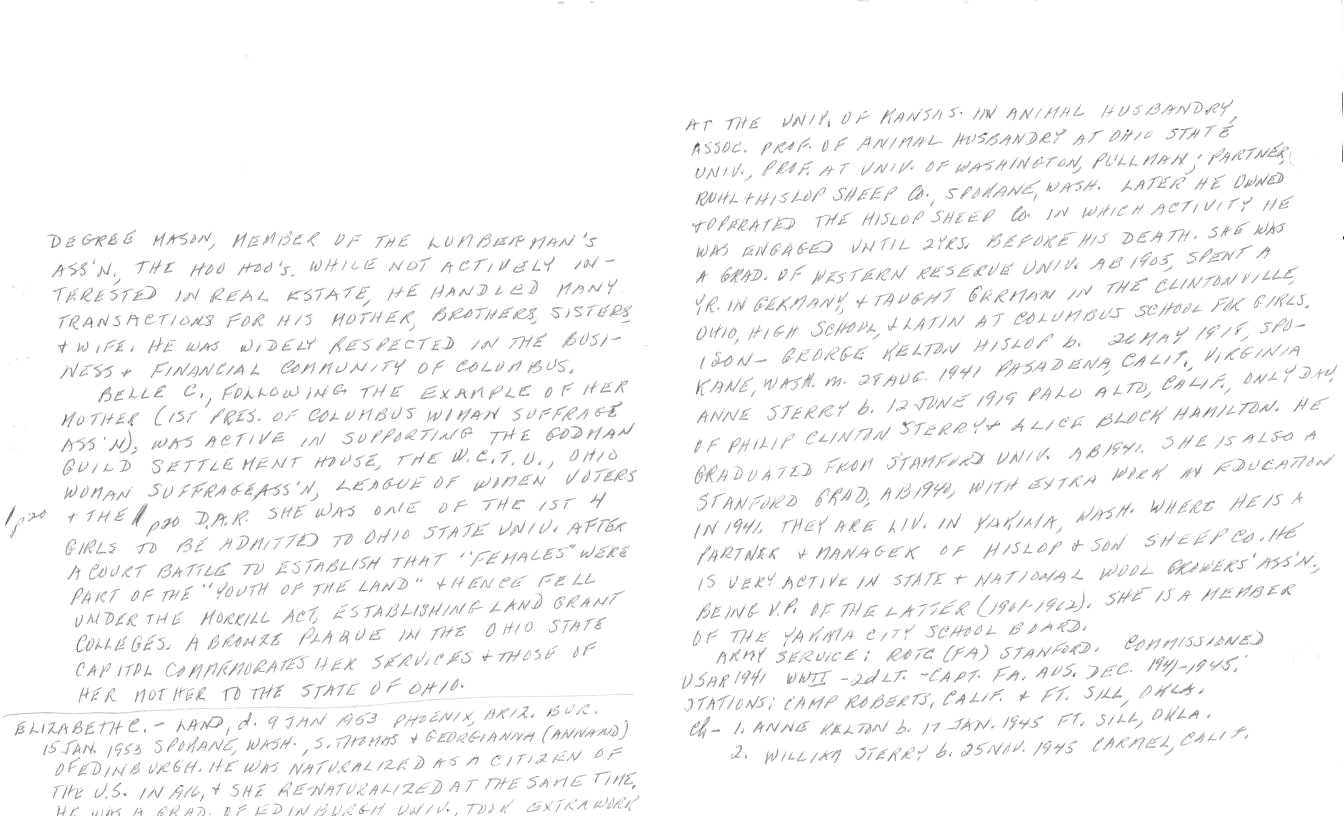 DEGREE MASON, MEMBER OF THE LUMBERMAN'S
ASS'N., THE HOO HOO'S. WHILE NOT ACTIVELY IN-
TERESTED IN REAL ESTATE, HE HANDLED MANY
TRANSACTIONS FOR HIS MOTHER, BROTHERS, SISTERS
+ WIFE. HE WAS WIDELY RESPECTED IN THE BUSI-
NESS + FINANCIAL COMMUNITY OF COLUMBUS.
BELLE C., FOLLOWING THE EXAMPLE OF HER
MOTHER (1ST PRES. OF COLUMBUS WOMAN SUFFRAGE
ASS'N), WAS ACTIVE IN SUPPORTING THE GODMAN
GUILD SETTLEMENT HOUSE, THE W.C.T.U., OHIO
WOMAN SUFFRAGE ASS'N, LEAGUE OF WOMEN VOTERS
p20 + THE p20 D.A.R. SHE WAS ONE OF THE 1ST 4
GIRLS TO BE ADMITTED TO OHIO STATE UNIV. AFTER
A COURT BATTLE TO ESTABLISH THAT "FEMALES" WERE
PART OF THE "YOUTH OF THE LAND" + HENCE FELL
UNDER THE MORRILL ACT, ESTABLISHING LAND GRANT
COLLEGES. A BRONZE PLAQUE IN THE OHIO STATE
CAPITOL COMMEMORATES HER SERVICES + THOSE OF
HER MOTHER TO THE STATE OF OHIO.
ELIZABETH C. - LAND, d. 9 JAN 1963 PHOENIX, ARIZ. BUR.
15 JAN. 1953 SPOKANE, WASH., S. THOMAS + GEORGIANNA (ANNAND)
OF EDINBURGH. HE WAS NATURALIZED AS A CITIZEN OF
THE U.S. IN + SHE RE-NATURALIZED AT THE SAME TIME.
HE WAS A GRAD. OF EDINBURGH UNIV., TOOK EXTRA WORK
AT THE UNIV. OF KANSAS. IN ANIMAL HUSBANDRY,
ASSOC. PROF. OF ANIMAL HUSBANDRY AT OHIO STATE
UNIV., PROF. AT UNIV. OF WASHINGTON, PULLMAN; PARTNER,
RUHL + HISLOP SHEEP Co., SPOKANE, WASH. LATER HE OWNED
+ OPERATED THE HISLOP SHEEP Co. IN WHICH ACTIVITY HE
WAS ENGAGED UNTIL 2 YRS. BEFORE HIS DEATH. SHE WAS
A GRAD. OF WESTERN RESERVE UNIV. AB 1905, SPENT A
YR. IN GERMANY, + TAUGHT GERMAN IN THE CLINTONVILLE,
OHIO, HIGH SCHOOL, + LATIN AT COLUMBUS SCHOOL FOR GIRLS.
1 SON - GEORGE KELTON HISLOP b. 26 MAY 1918, SPO-
KANE, WASH. m. 29 AUG. 1941 PASADENA, CALIF., VIRGINIA
ANNE STERRY b. 12 JUNE 1919 PALO ALTO, CALIF., ONLY DAU
OF PHILIP CLINTON STERRY + ALICE BLOCK HAMILTON. HE
GRADUATED FROM STANFORD UNIV. AB 1941. SHE IS ALSO A
STANFORD GRAD, AB 1940, WITH EXTRA WORK IN EDUCATION
IN 1941. THEY ARE LIV. IN YAKIMA, WASH. WHERE HE IS A
PARTNER + MANAGER OF HISLOP + SON SHEEP CO. HE
IS VERY ACTIVE IN STATE + NATIONAL WOOL GROWERS' ASS'N.,
BEING V.P. OF THE LATTER (1961-1962). SHE IS A MEMBER
OF THE YAKIMA CITY SCHOOL BOARD.
ARMY SERVICE: ROTC (FA) STANFORD. COMMISSIONED
USAR 1941 WWII - 2d LT. - CAPT. FA. AUS. DEC. 1941-1945.
STATIONS: CAMP ROBERTS, CALIF. + FT. SILL, OKLA.
Ch - 1. ANNE KELTON b. 17 JAN. 1945 FT. SILL, OKLA.
2. WILLIAM STERRY b. 25 NOV. 1945 CARMEL, CALIF.